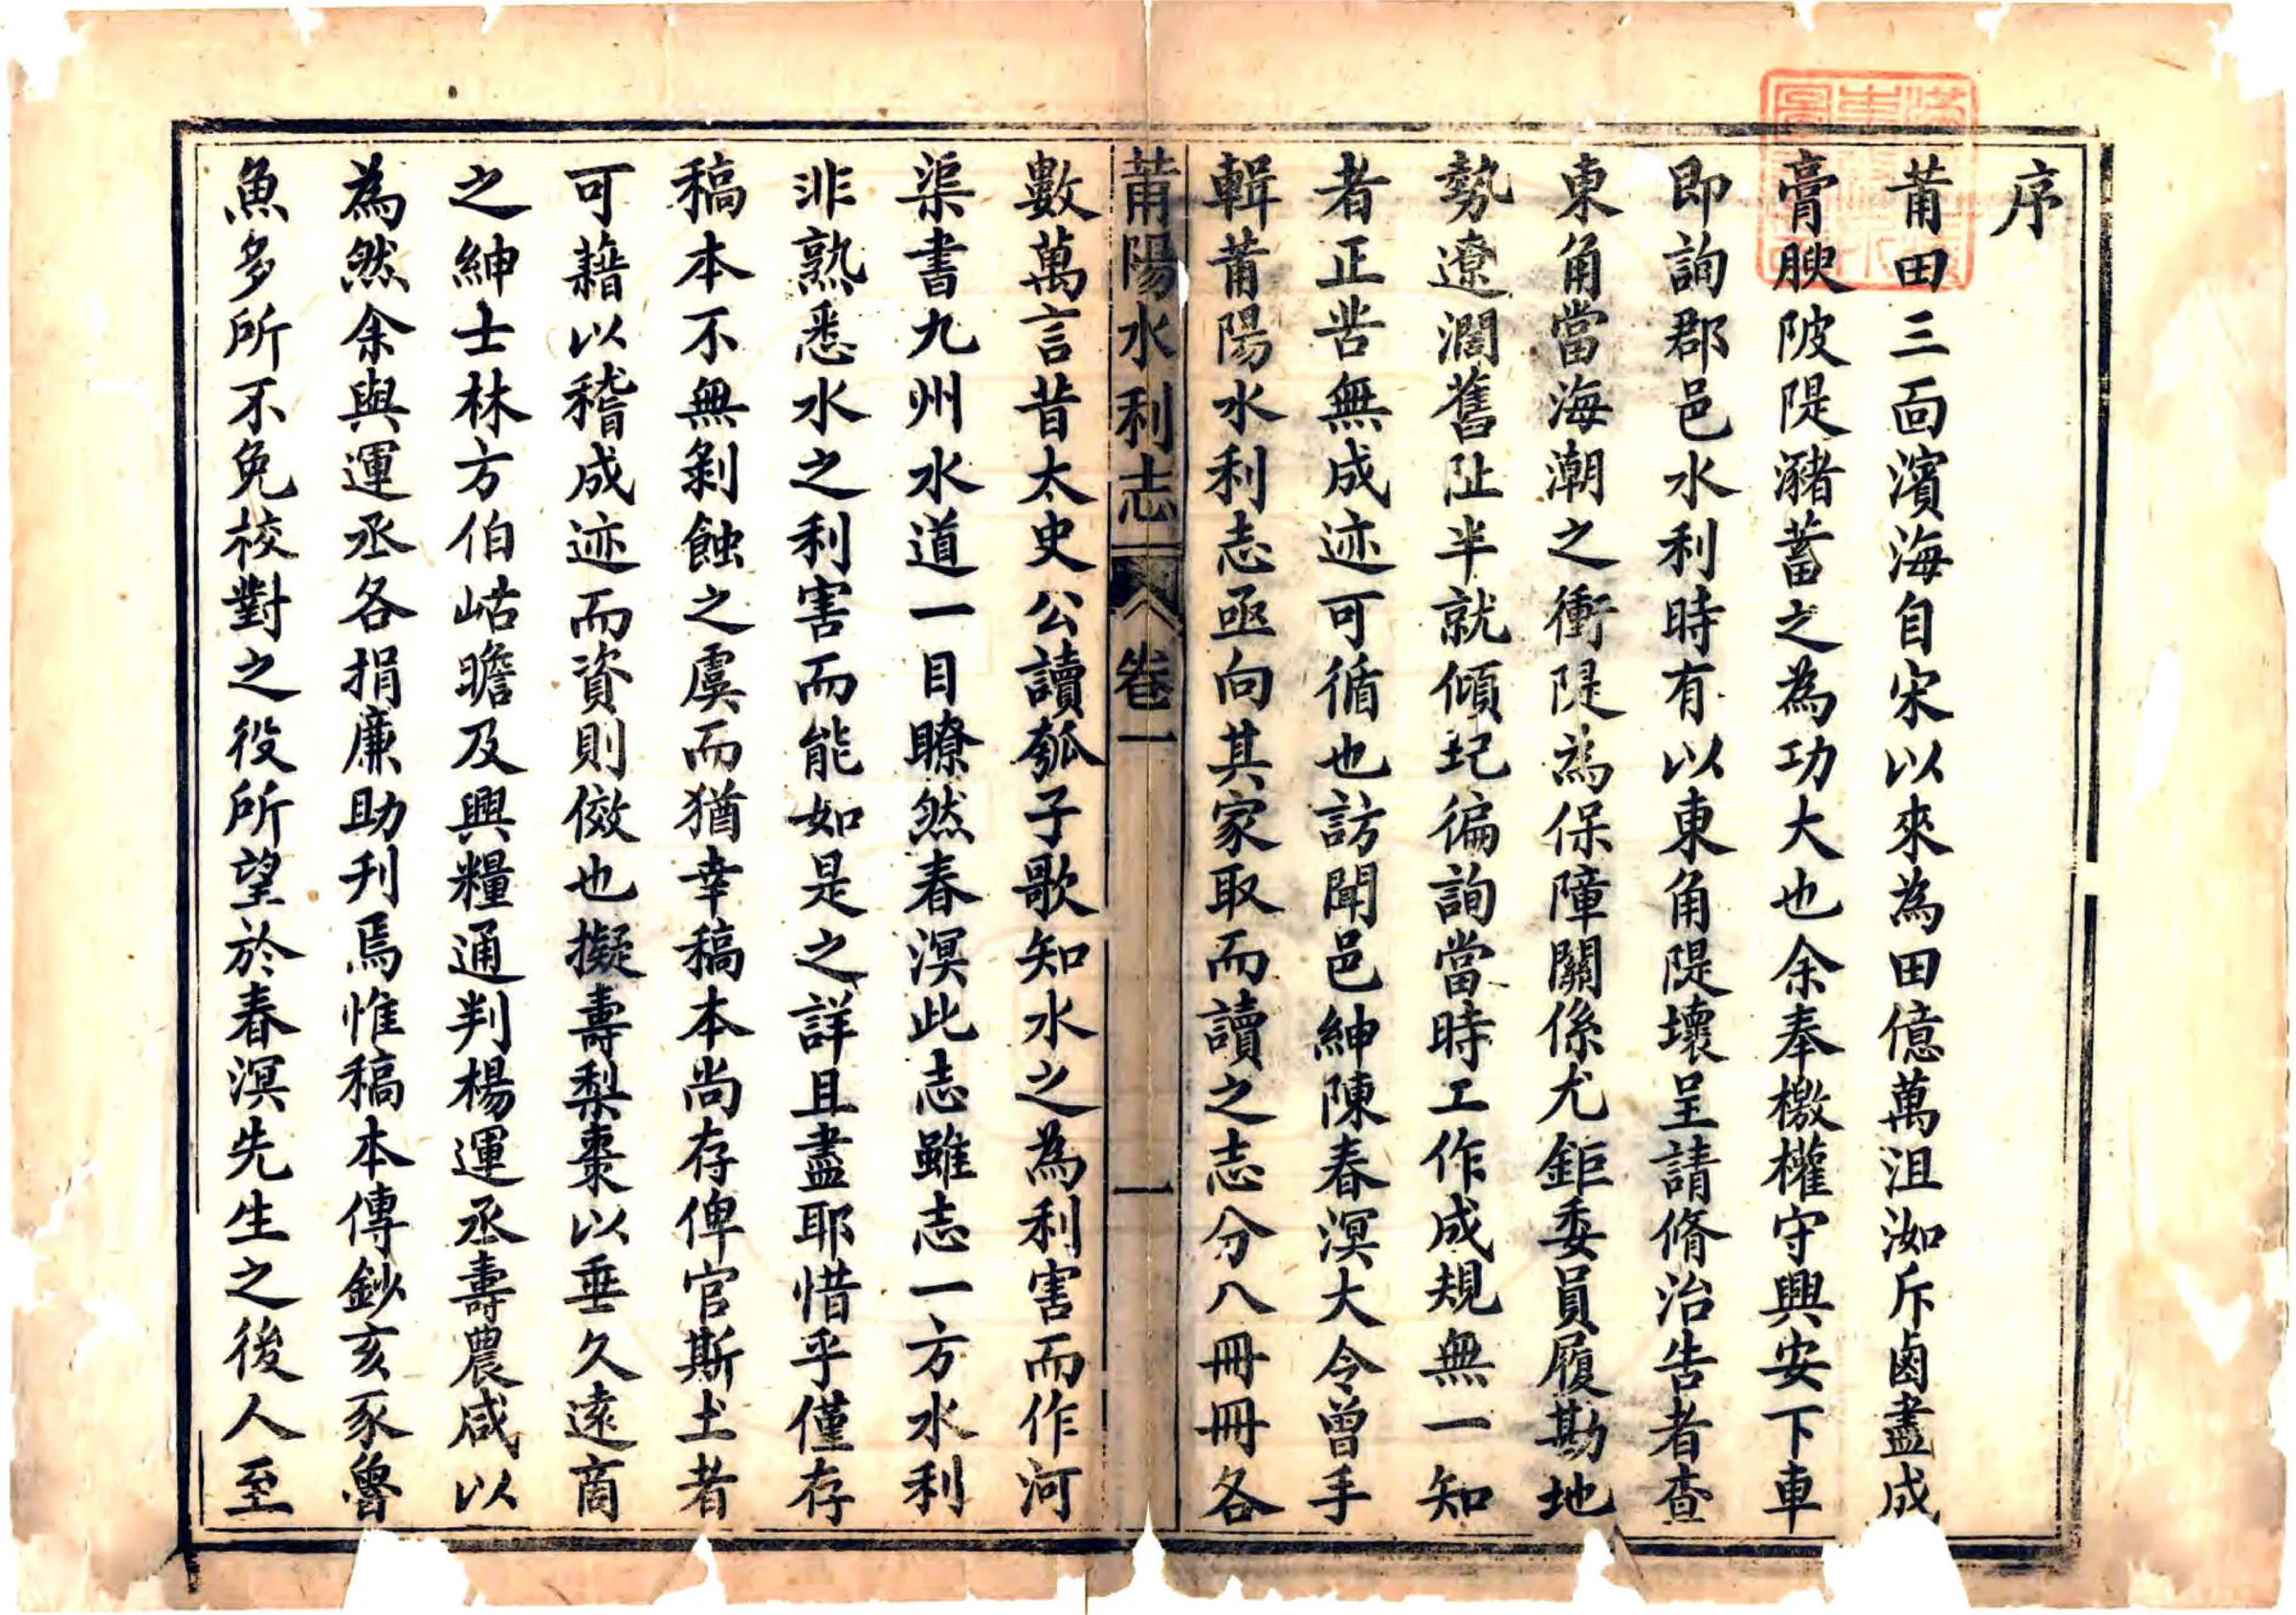 序
莆田三面濱海自宋以來為田億萬沮洳斥鹵盡成
膏腴陂隄瀦蓄之為功大也余奉檄權守興安下車
即詢郡邑水利時有以東角隄壞呈請脩治告者查
東角當海潮之衝隄為保障關係尤鉅委員履勘地
勢遼濶舊址半就傾圮徧詢當時工作成規無一知
者正苦無成迹可循也訪聞邑紳陳春溟大令曾手
輯莆陽水利志亟向其家取而讀之志分八冊冊各
莆陽水利志 卷一 一
數萬言昔太史公讀瓠子歌知水之為利害而作河
渠書九州水道一目瞭然春溟此志雖志一方水利
非熟悉水之利害而能如是之詳且盡耶惜乎僅存
稿本不無剝蝕之虞而猶幸稿本尚存俾官斯土者
可藉以稽成迹而資則傚也擬壽梨棗以垂久遠商
之紳士林方伯岵瞻及興糧通判楊運丞壽農咸以
為然余與運丞各捐廉助刋焉惟稿本傳鈔亥豕魯
魚多所不免校對之役所望於春溟先生之後人至